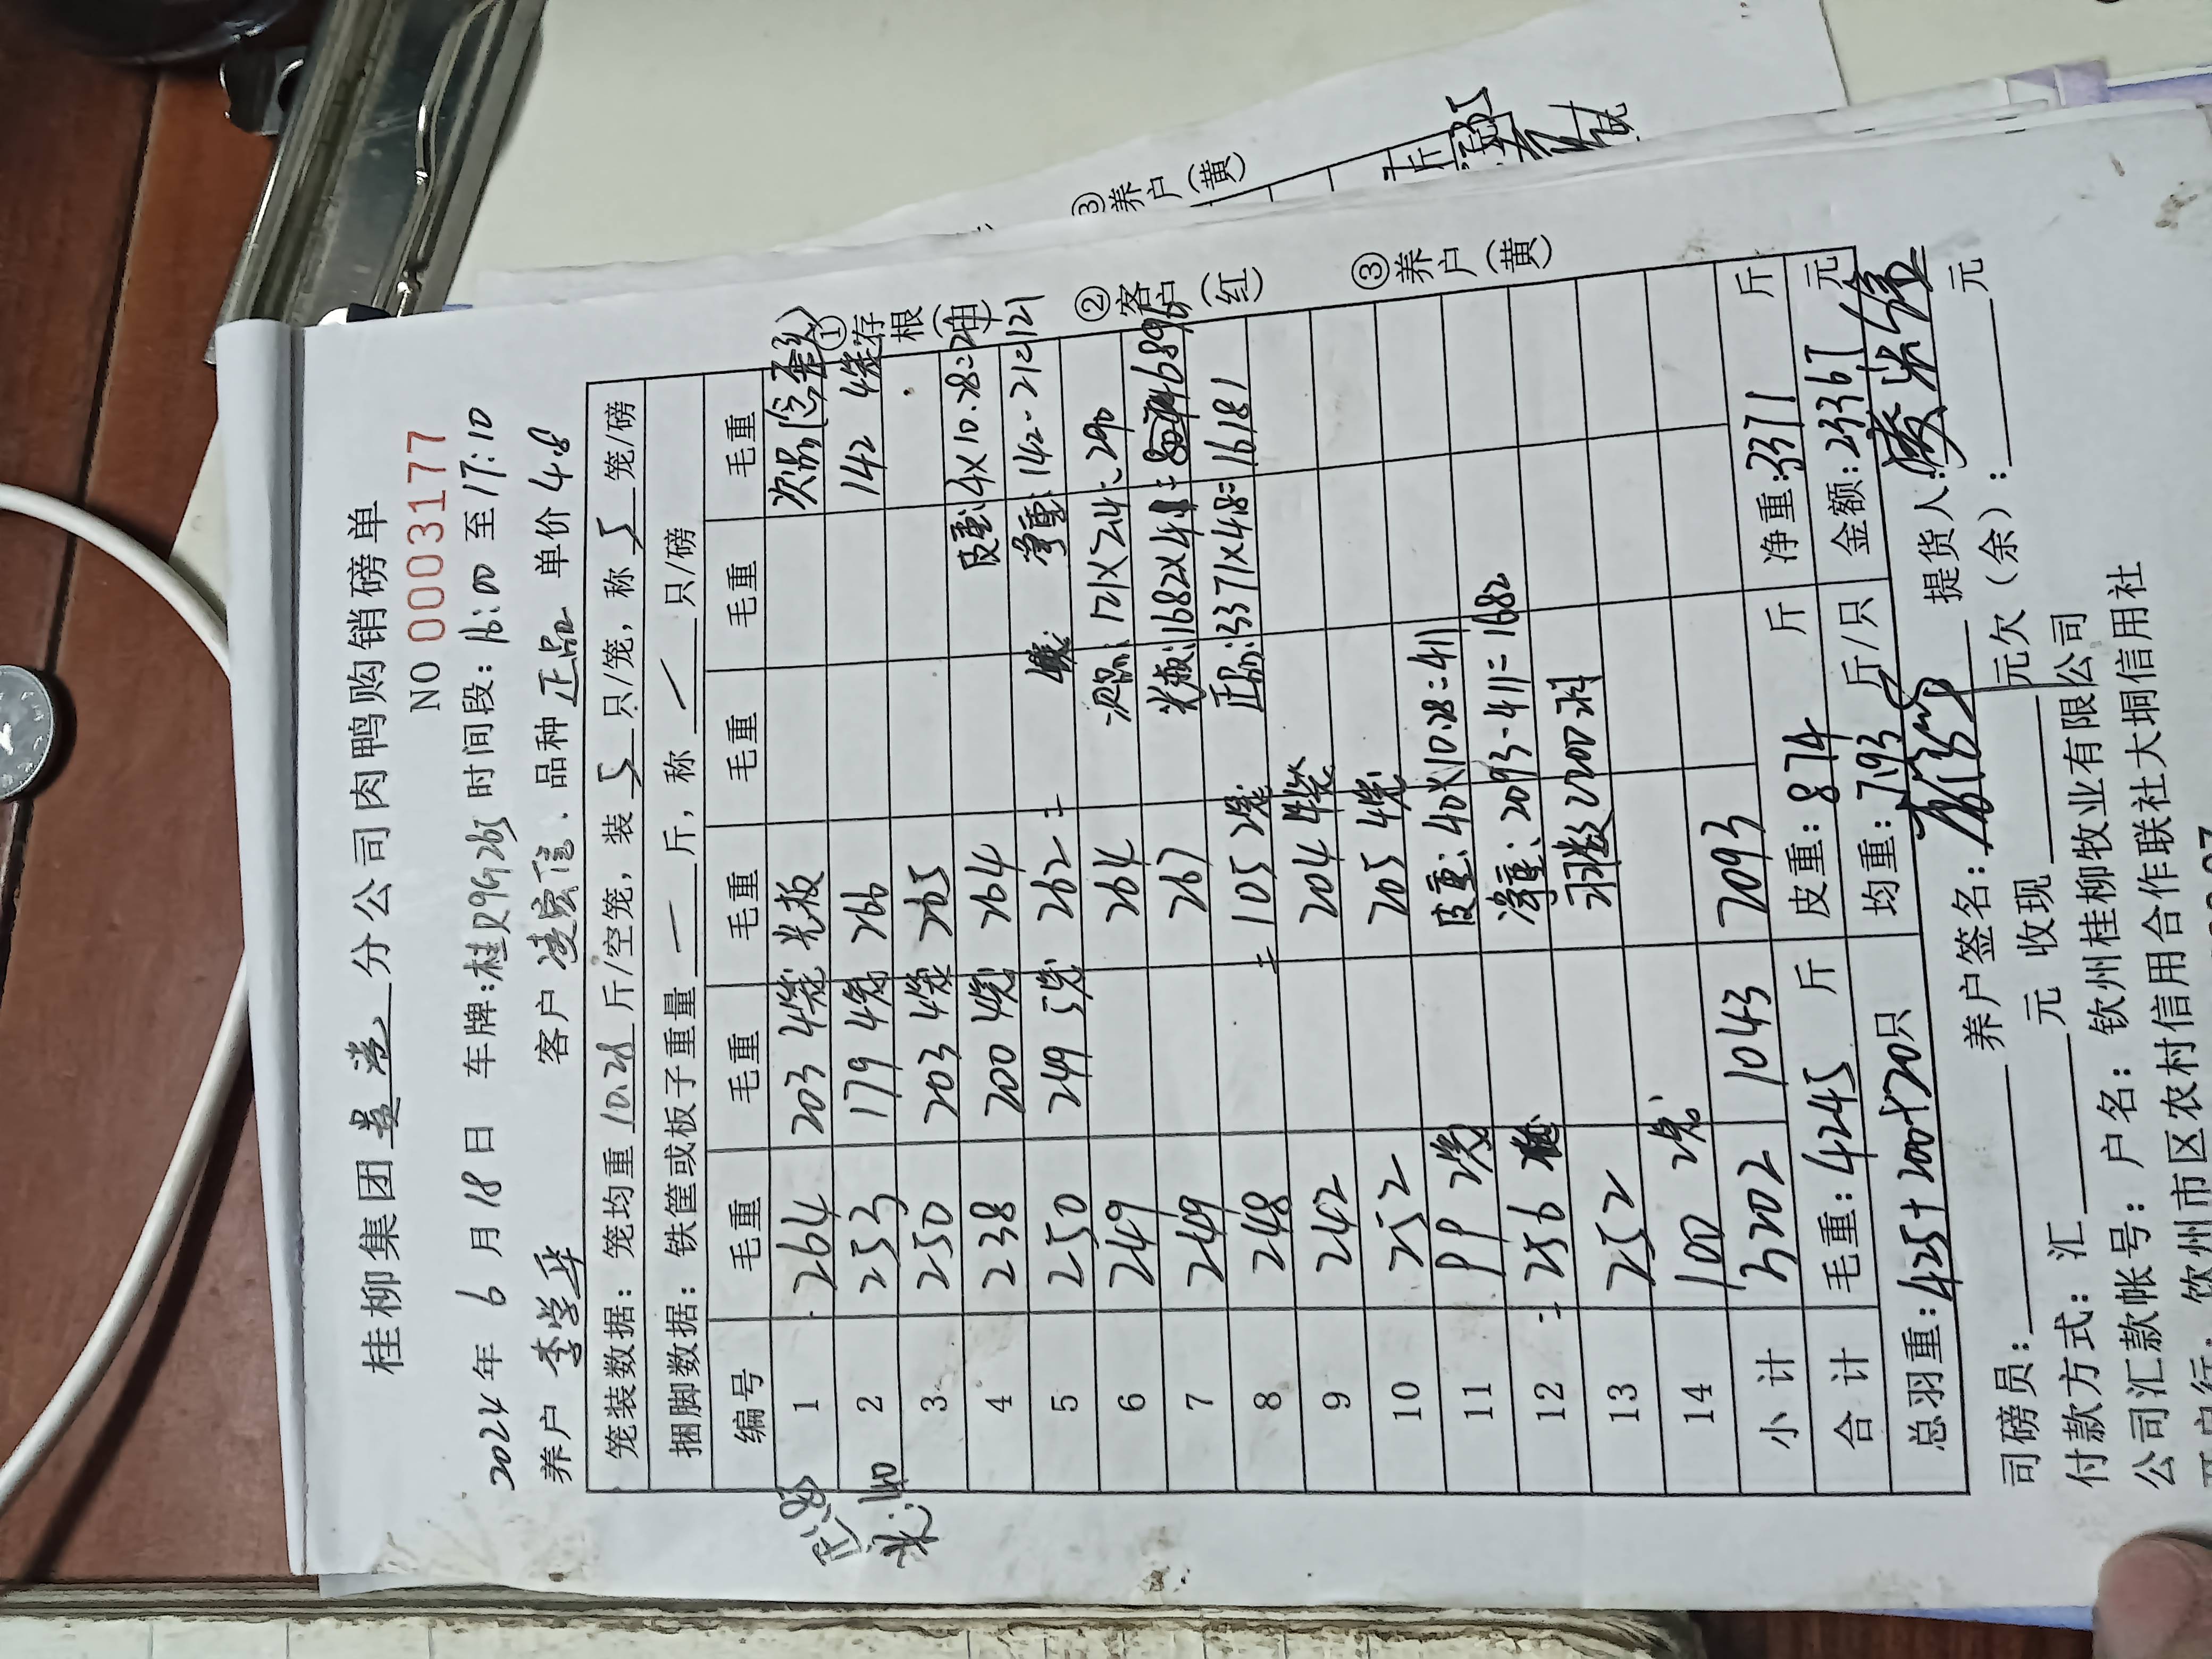 桂柳集团 分公司肉鸭购销磅单
NO 0003177
2024年 6 月 18 日 车牌:桂 时间段: 16:00 至 17:10
养户 李学平 客户 凌宏信 品种 正品 单价 4.8
笼装数据: 笼均重 10.28 斤/空笼, 装 5 只/笼, 称 5 笼/磅
捆脚数据: 铁筐或板子重量 — 斤, 称 / 只/磅
编号 毛重 毛重 毛重 毛重 毛重 毛重
1 264 203 4笼 光板 次品
2 253 179 4笼 266 142 4笼
3 250 203 4笼 265
4 238 200 4笼 264 皮重: 4×10.28=
5 250 249 5笼 262 净重: 142-21=121
6 249 264 121×2.4=290
7 249 267 光板: 1682×4.1=
8 248 105 2笼 正品: 3371×4.8=16181
9 242 204 4笼
10 252 205 4笼
11 99 2笼 皮重: 40×10.28=411
12 256 净重: 2093-411=1682
13 252 羽数: 200
14 100 2笼
小 计 3202 1043 2093
合 计 毛重: 4245 斤 皮重: 874 斤 净重: 3371 斤
总羽重: 425+200+20只 均重: 7.93 斤/只 金额: 23367 元
司磅员: 养户签名: 提货人:
付款方式: 汇 元 收现 元欠(余): 元
公司汇款帐号: 户名: 钦州桂柳牧业有限公司
钦州市区农村信用合作联社大垌信用社
①存根
②客户(红)
③养户(黄)
③养户(黄)
斤